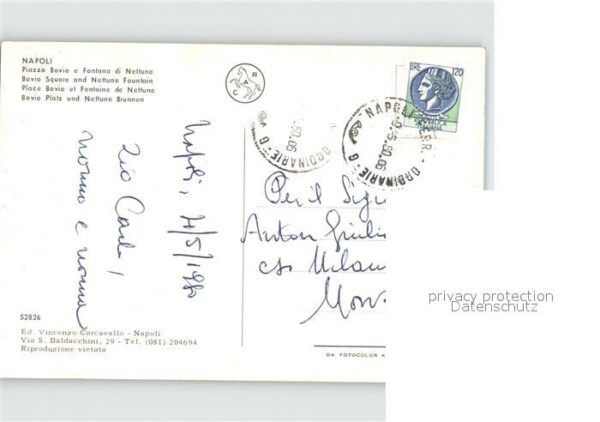 NAPOLI
Piazza Bovio e Fontana di Nettuno
Bovio Square and Nettuno Fountain
Place Bovio et Fontaine de Nettuno
Bovio Platz und Nettuno Brunnen
C A R
LIRE 120
NAPOLI FERR. - ORDINARIE - G
ORDINARIE - G
Napoli, 7/5/1980
Zio Carlo,
nonno e nonna
Per il
Anton Giuli
cso Milan
Mon
52826
Ed. Vincenzo Carcavallo - Napoli
Via S. Baldacchini, 29 - Tel. (081) 204694
Riproduzione vietata
DA FOTOCOLOR K
privacy protection
Datenschutz